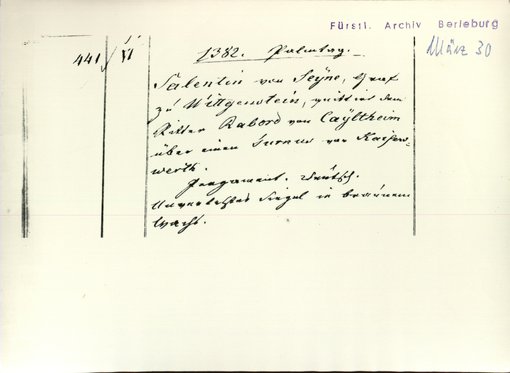 Fürstl. Archiv Berleburg
März 30
441 VI
1382. Palmtag.
Salentin von Seyne, Graf
zu Wittgenstein, quittirt dem
Ritter Rabord von Caÿltheim
über einen Turnus von Kaisers-
werth.
Pergament. Deutsch.
Unverletztes Siegel in braunem
Wachs.